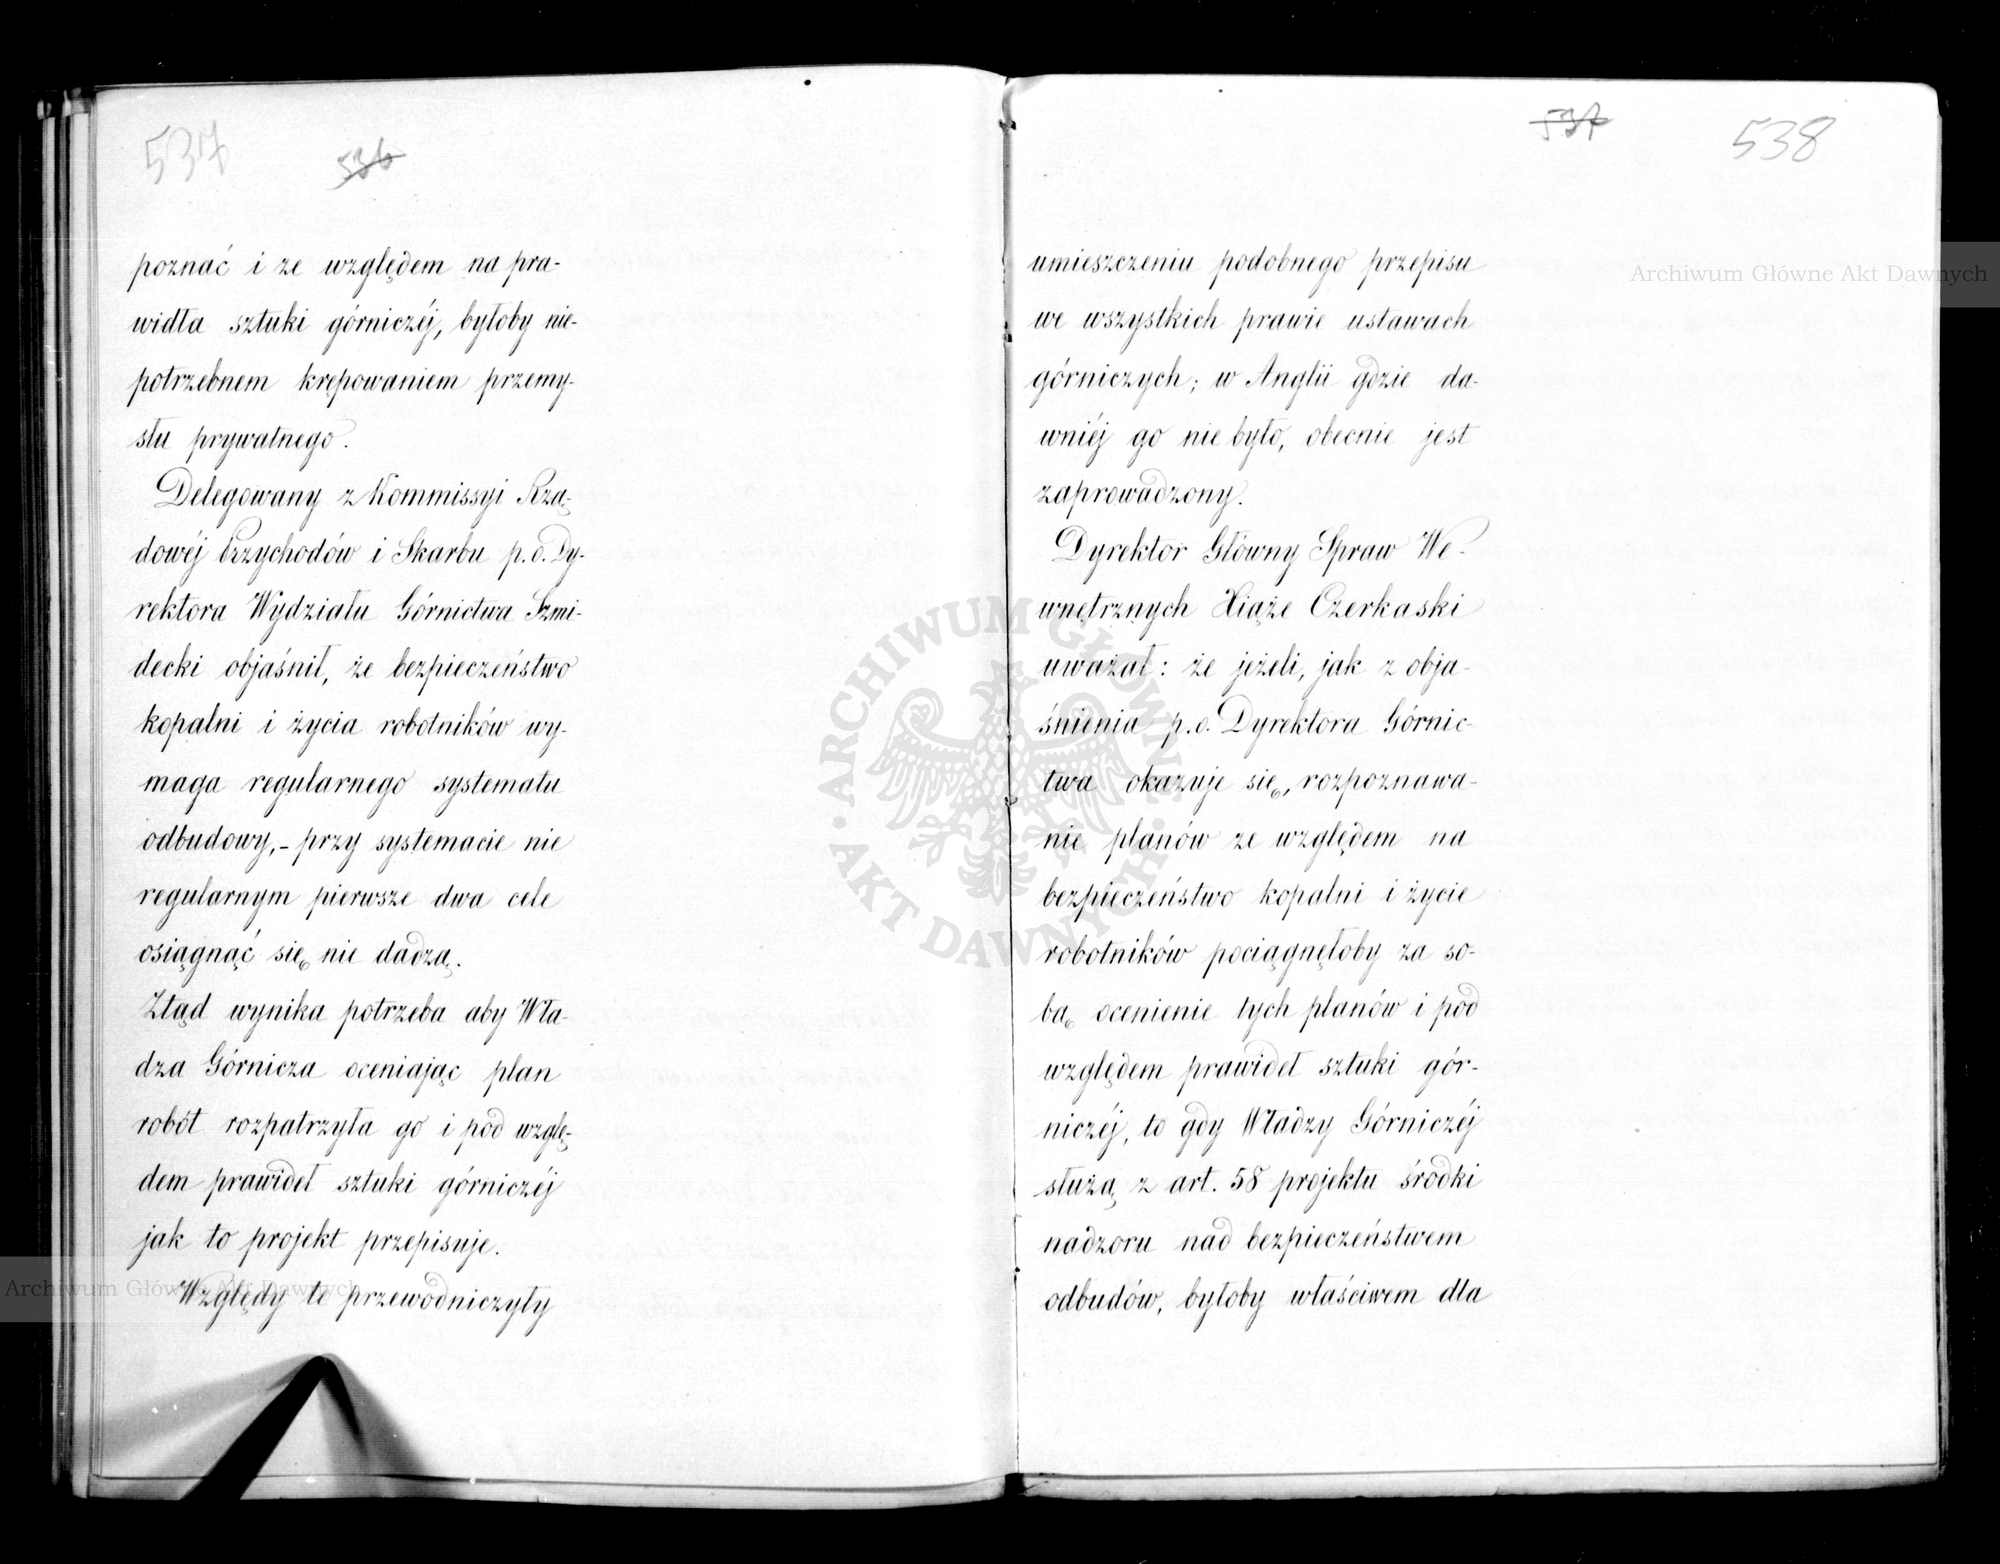 537
536
poznać i ze względem na pra-
widła sztuki górniczéj, byłoby nie-
potrzebnem krępowaniem przemy-
słu prywatnego.
Delegowany z Kommissyi Rzą-
dowéj Przychodów i Skarbu p.o. Dy-
rektora Wydziału Górnictwa Szmi-
decki objaśnił, że bezpieczeństwo
kopalni i życia robotników wy-
maga regularnego systematu
odbudowy,- przy systemacie nie
regularnym pierwsze dwa cele
osiągnąć się nie dadzą.
Ztąd wynika potrzeba aby Wła-
dza Górnicza oceniając plan
robót rozpatrzyła go i pod wzglę-
dem prawideł sztuki górniczéj
jak to projekt przepisuje.
Względy te przewodniczyły
537
538
umieszczeniu podobnego przepisu
we wszystkich prawie ustawach
górniczych; w Anglii gdzie da-
wniéj go nie było, obecnie jest
zaprowadzony.
Dyrektor Główny Spraw We-
wnętrznych Xiąże Czerkaski
uważał: że jeżeli, jak z obja-
śnienia p.o. Dyrektora Górnic-
twa okazuje się, rozpoznawa-
nie planów ze względem na
bezpieczeństwo kopalni i życie
robotników pociągnęłoby za so-
bą ocenienie tych planów i pod
względem prawideł sztuki gór-
niczéj, to gdy Władzy Górniczéj
służą z art. 58 projektu środki
nadzoru nad bezpieczeństwem
odbudów, byłoby właściwem dla
Archiwum Główne Akt Dawnych
Archiwum Główne Akt Dawnych
ARCHIWUM GŁÓWNE
AKT DAWNYCH